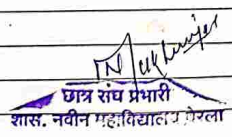 छात्र संघ प्रभारी
शास. नवीन महाविद्यालय बेरला